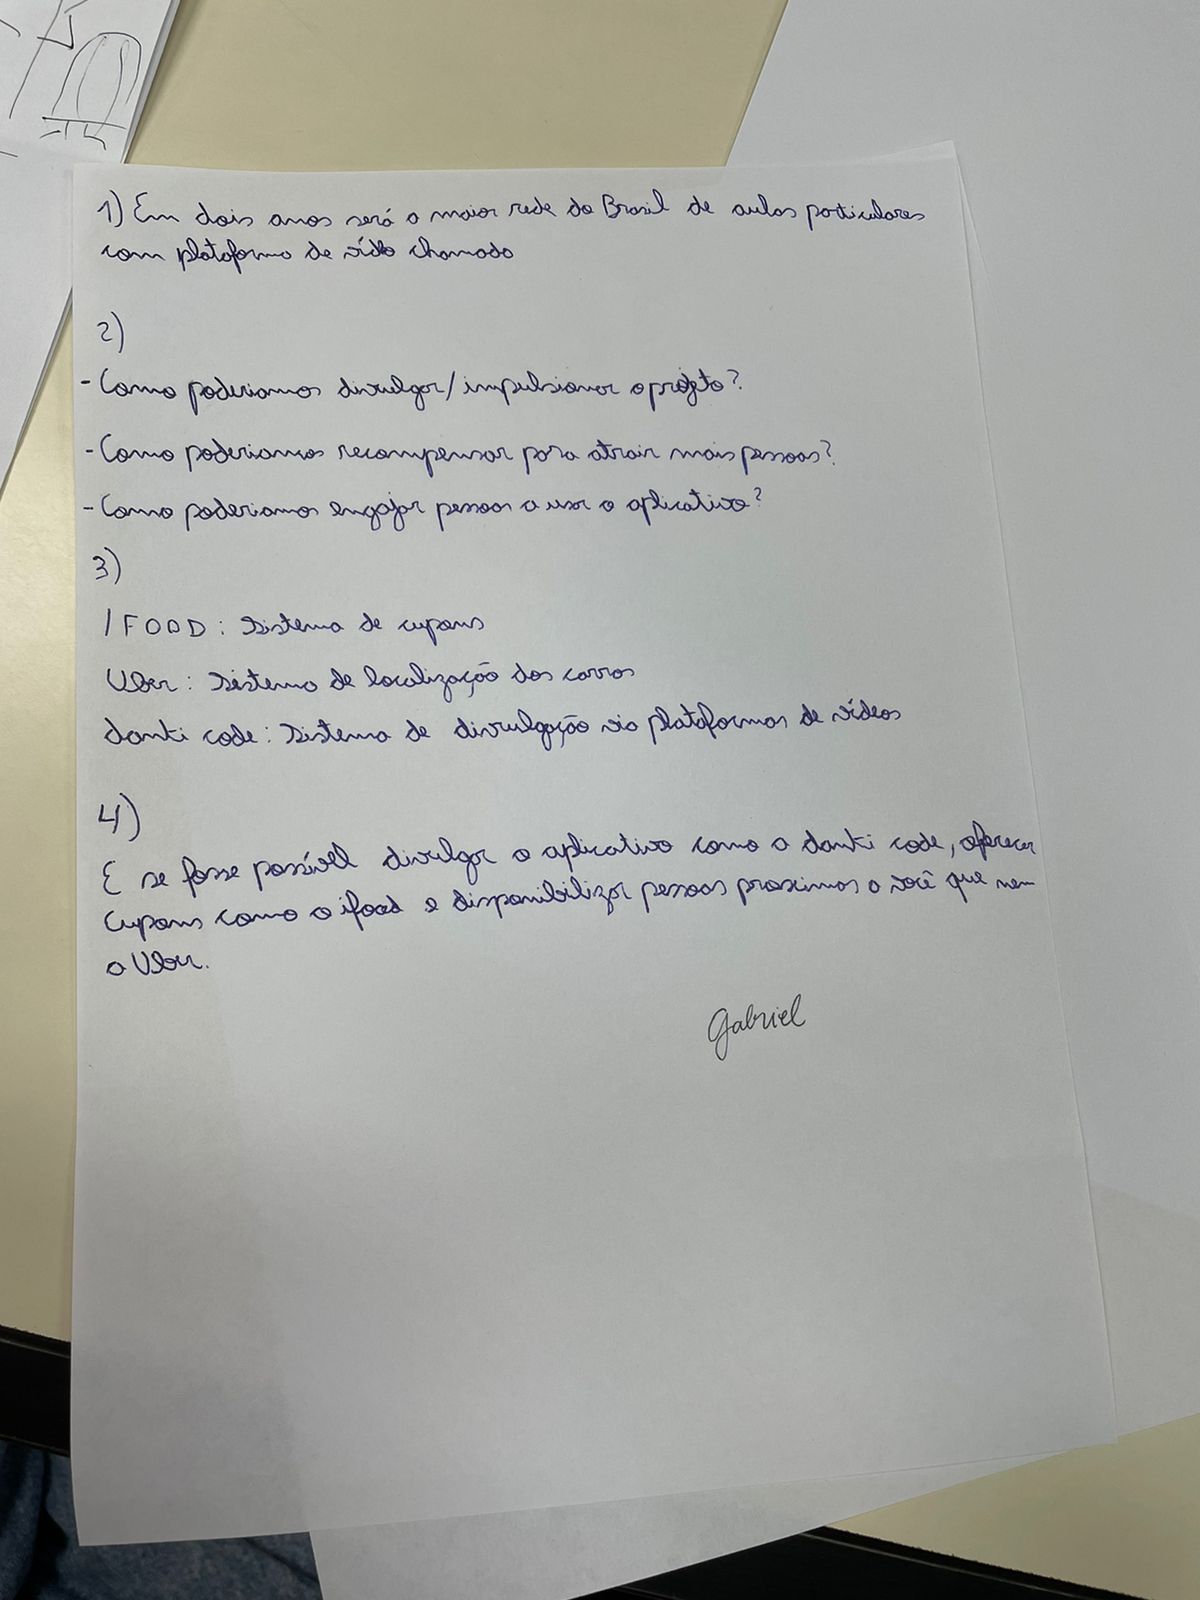 1) Em dois anos será a maior rede do Brasil de aulas particulares
com plataforma de vídeo chamada
2)
- Como poderiamos divulgar/impulsionar o projeto?
- Como poderiamos recompensar para atrair mais pessoas?
- Como poderiamos engajar pessoas a usar o aplicativo?
3)
IFOOD: Sistema de cupons
Uber: Sistema de localização dos carros
danki code: Sistema de divulgação via plataformas de vídeos
4)
E se fosse possível divulgar o aplicativo como a danki code, oferecer
cupons como o ifood e disponibilizar pessoas proximas a você que nem
o Uber.
Gabriel